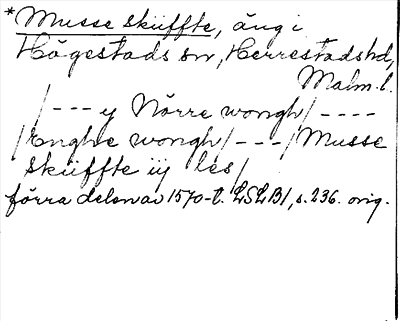 *Musse skiiffte, äng i
Högestads sn, Herrestads hd,
Malm. l.
/--- y Nörre wongh/----
/Enghe wongh/---/Musse
skiiffte iij les/
förra delen av 1570-t. LSLB1, s. 236. orig.